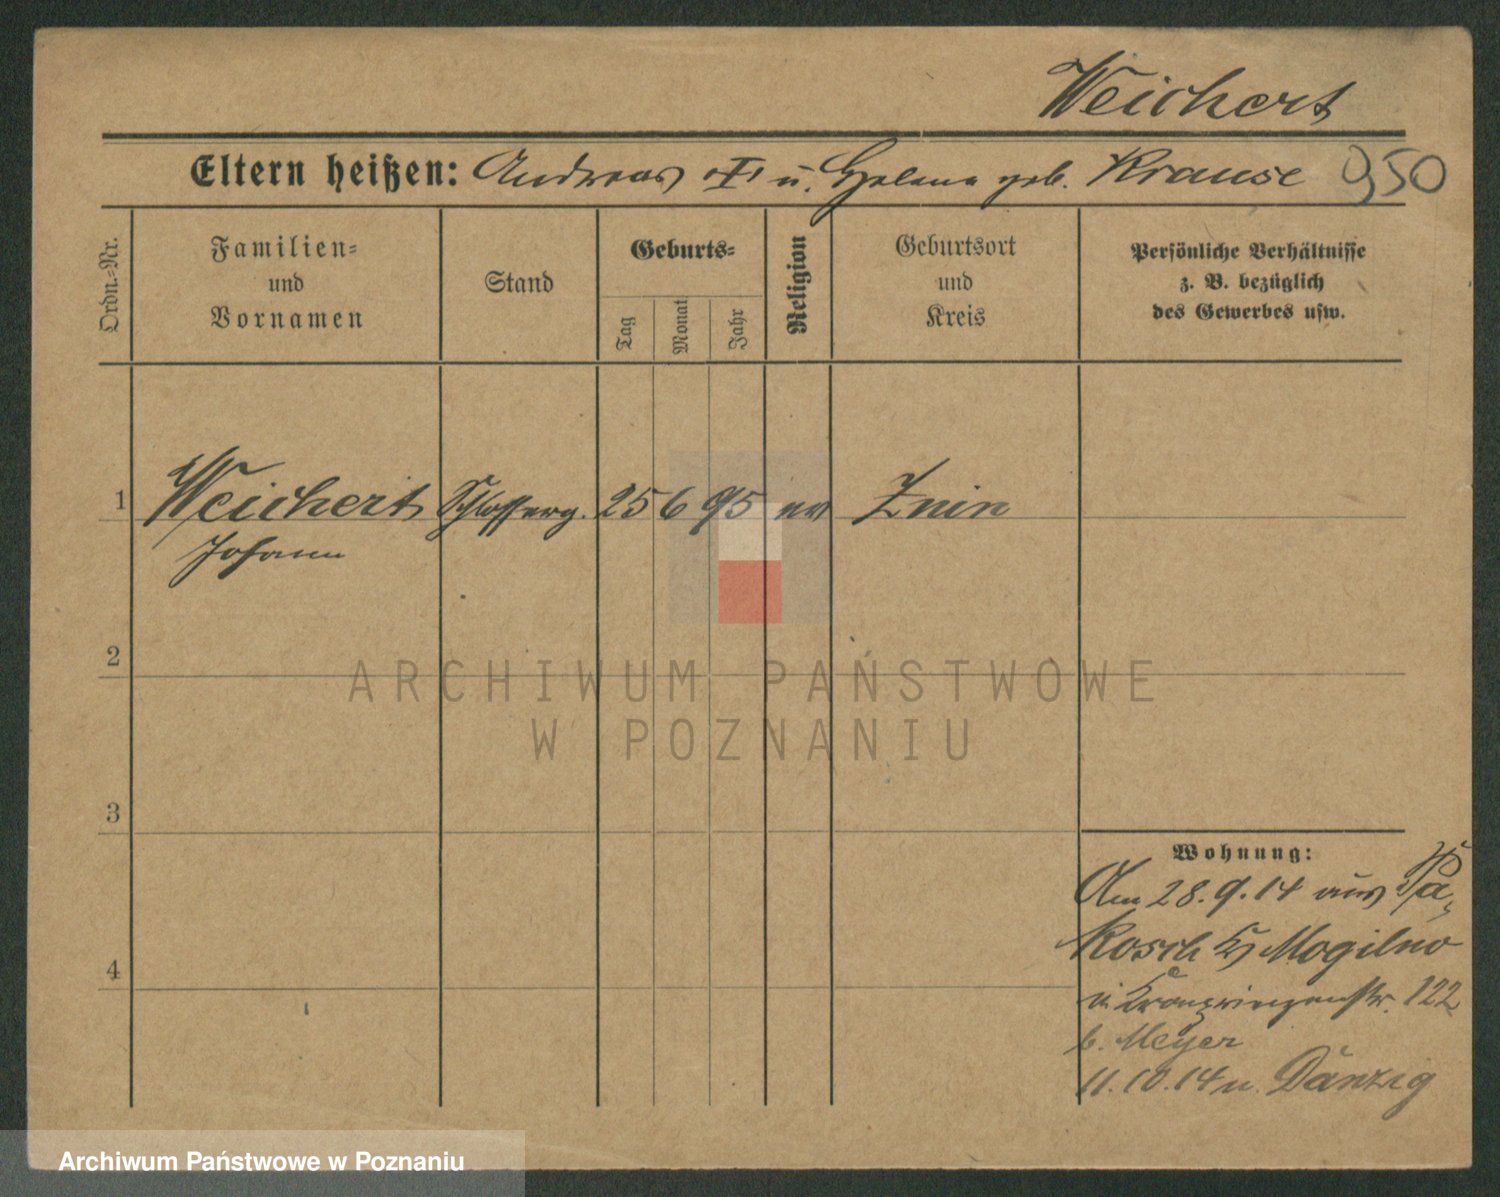 Weichert
Eltern heißen: Andreas † u. Helena geb. Krause 950
Ordn.-Nr.
Familien-
und
Vornamen
Stand
Geburts-
Tag
Monat
Jahr
Religion
Geburtsort
und
Kreis
Persönliche Verhältnisse
z. B. bezüglich
des Gewerbes usw.
1 Weichert Schlosserg. 25 6 95 ev Znin
Johann
2
3
4
Wohnung:
Am 28.9.14 aus Pa-
kosch Kr Mogilno
n. Kronprinzenstr. 122
b. Meyer
11.10.14 n. Danzig
ARCHIWUM PAŃSTWOWE
W POZNANIU
Archiwum Państwowe w Poznaniu